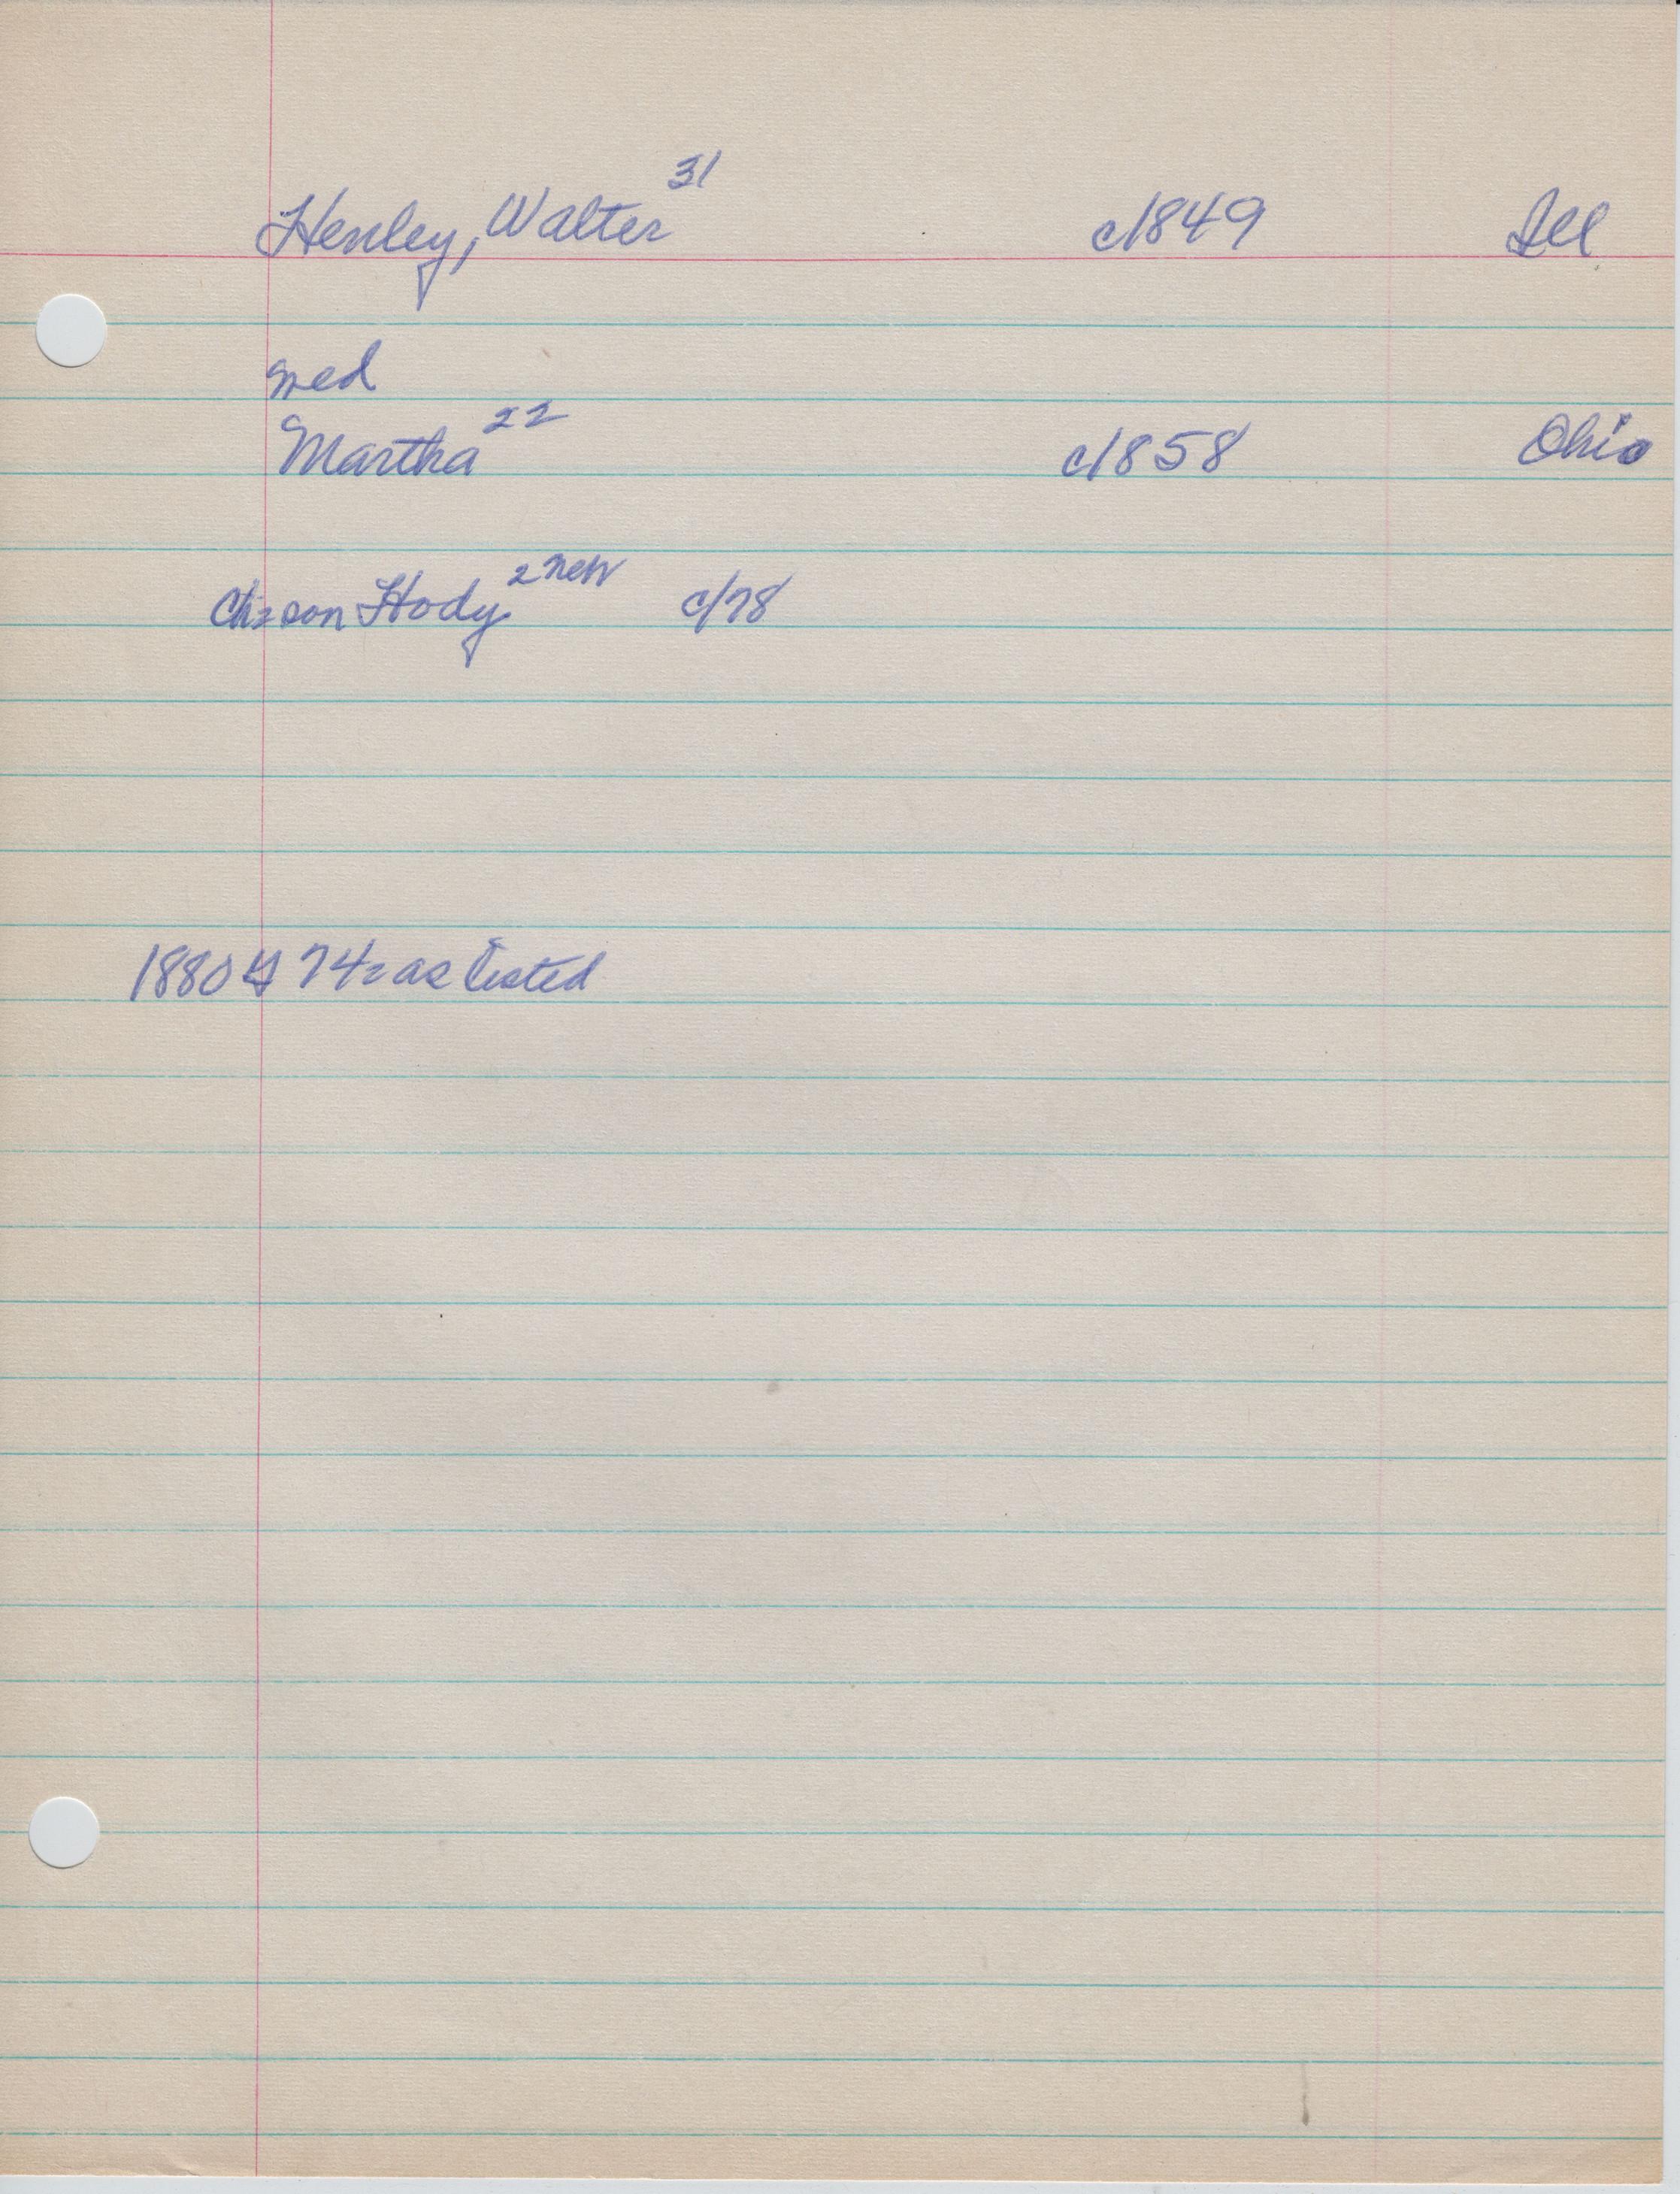 Henley, Walter 31 c1849 Ill
med
Martha 22 c1858 Ohio
Ch= son Hody 2 Neb c/78
1880 74= as listed